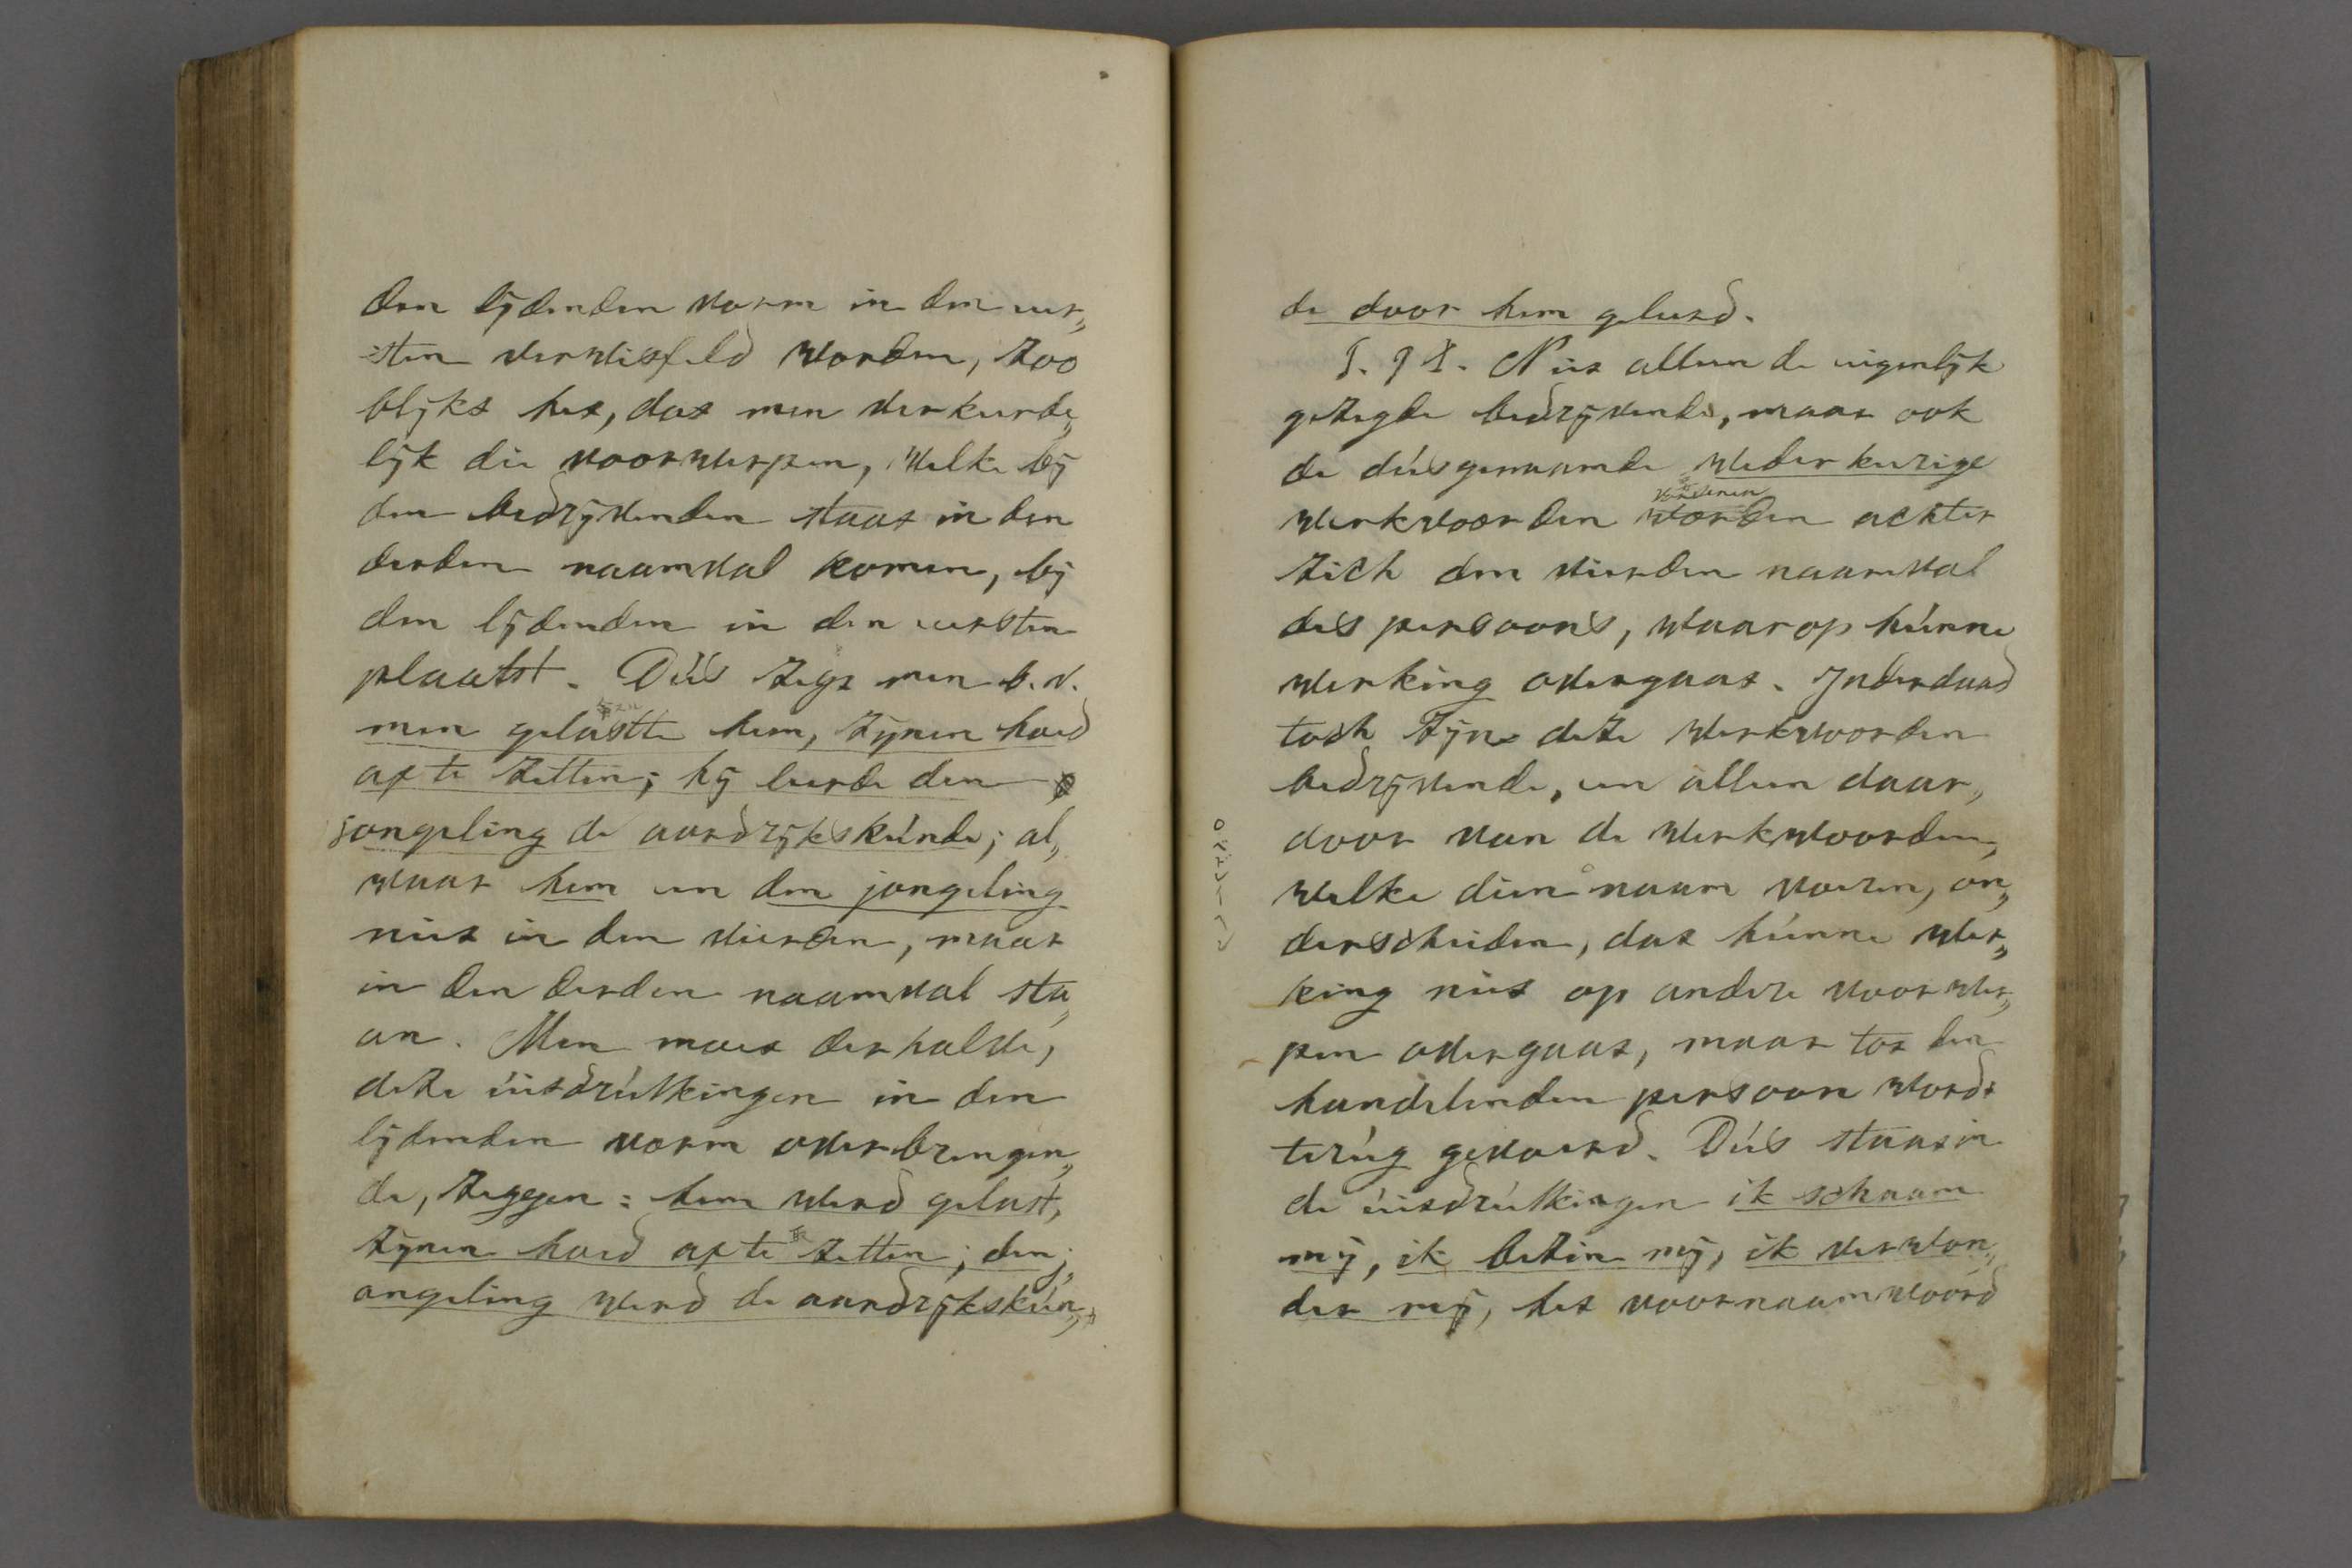 den lijdenden vorm in den eer„
sten verwisseld worden, zoo
blijkt het, dat men verkeerde„
lijk die voorwerpen, welke bij
den bedrijvenden staat in den
derden naamval komen, bij
den lijdenden in den eersten
plaatst. Dús zegt men b.v.
men gelastte hem, zijnen hoed
af te zetten; hij leerde den
jongeling de aardrijkskúnde; al„
waar hem en den jongeling
niet in den vierden, maar
in den derden naamval sta„
an. Men moet derhalve,
deze úitdrúkkingen in den
lijdenden vorm overbrengen„
de, zeggen: hem werd gelast,
zijnen hoed af te zetten; den j„
ongeling werd de aardrijkskún„
de door hem geleerd.
§. 91. Niet alleen de eigenlijk
gezegde bedrijvende, maar ook
de dúsgenaamde wederkeerige
vorderen
werkwoorden worden achter
zich den vierden naamval
des persoons, waarop húnne
werking overgaat. Inderdaad
toch zijn deze werkwoorden
bedrijvende, en alleen daar„
door van de werkwoorden,
welke dien naam voeren, on„
derscheiden, dat húnne wer„
king niet op andere voorwer„
pen overgaat, maar tot den
handelenden persoon wordt
terúg gevoerd. Dús staat in
de úitdrúkkingen ik schaam
mij, ik bezin mij, ik verwon„
der mij, het voornaamwoord